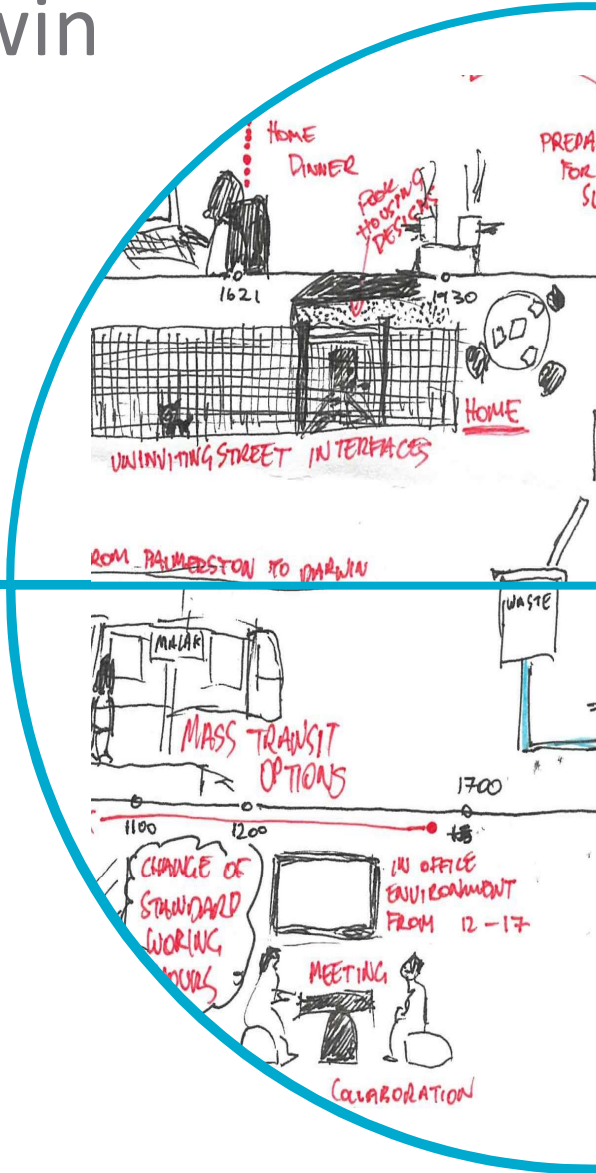 win
HOME
DINNER
PREPA
FOR
SU
POOR
HOUSING
DESIGNS
1621
1930
HOME
UNINVITING STREET INTERFACES
ROM PALMERSTON TO DARWIN
WASTE
MALAK
MASS TRANSIT
OPTIONS
1700
1100
1200
CHANGE OF
STANDARD
WORING
HOURS
IN OFFICE
ENVIRONMENT
FROM 12-17
MEETING
COLLABORATION